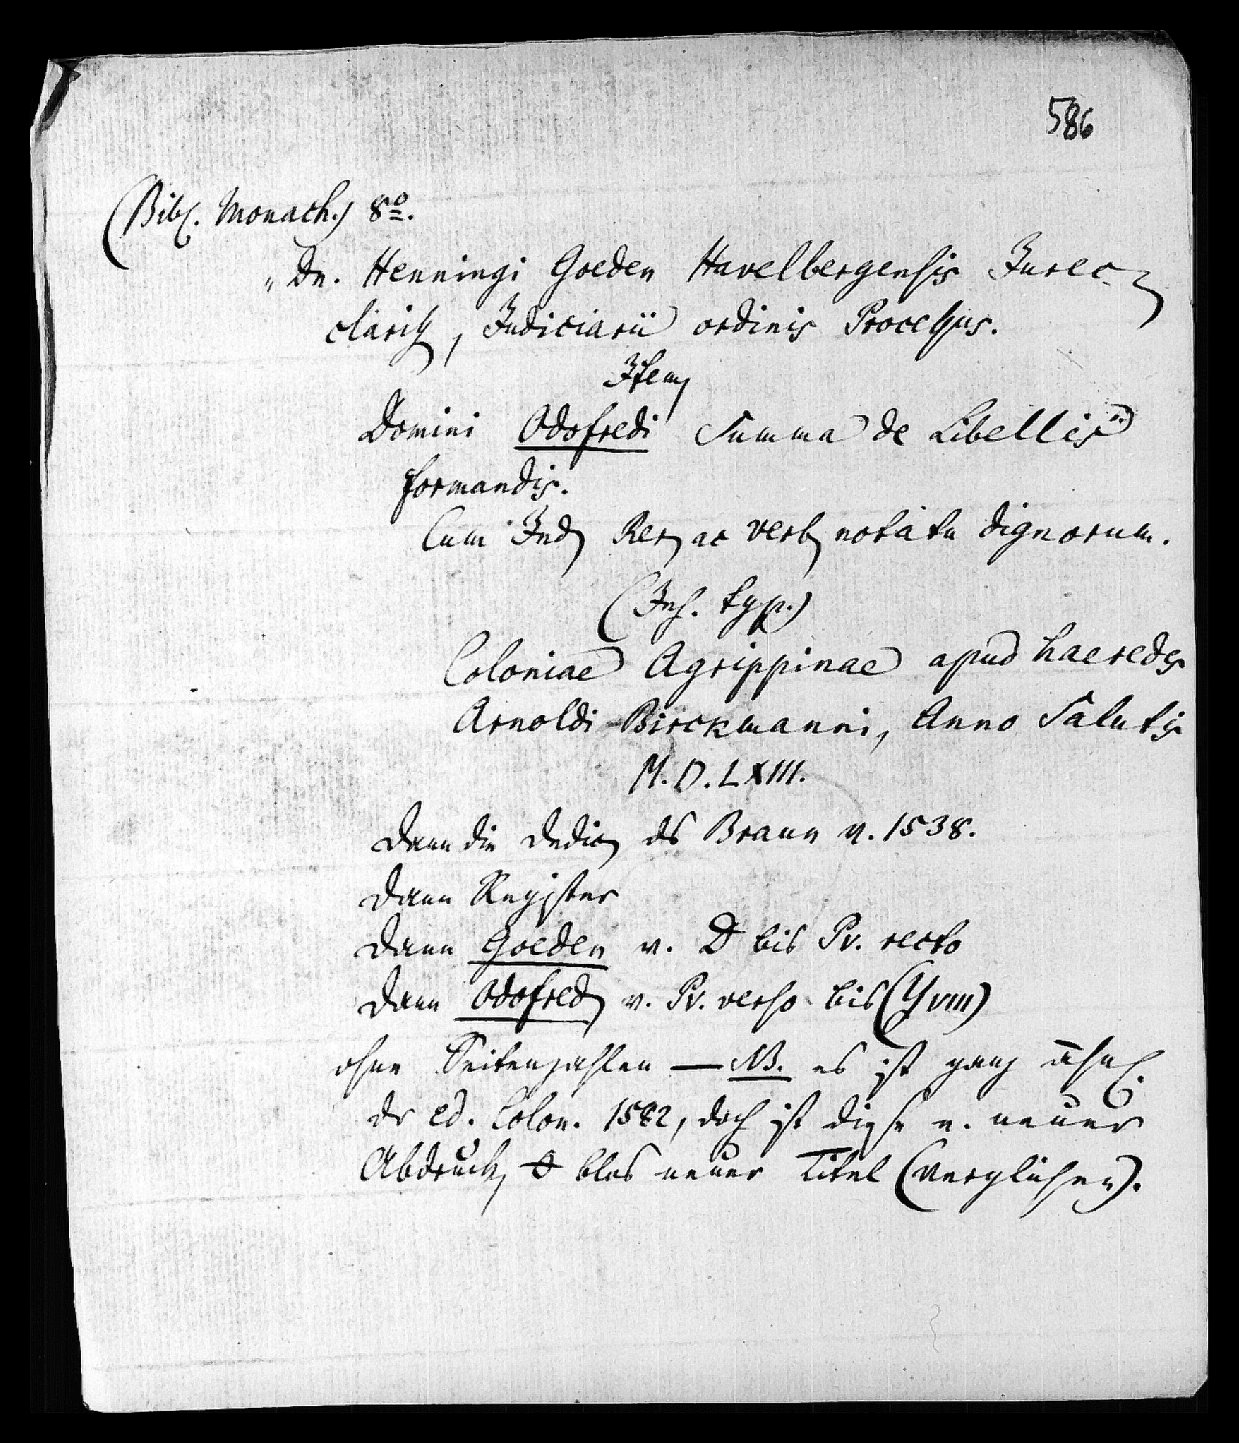 586
(Bibl. Monach.) 8º.
„Dn. Henningi Goeden Havelbergensis Jurec.
clariss, Judiciarii ordinis Processus.
Item
Domini Odofredi Summa de Libellis
formandis.
Cum Ind Rer ac verb notatu dignorum.
(Ins. typ.)
Coloniae Agrippinae apud haeredes
Arnoldi Birckmanni, Anno Salutis
M.D.LXIII.
dann die Dedic des Braun v. 1538.
dann Register
dann Goeden v. D bis Pv. recto
dann Odofred v. Pv. verso bis (Yviii)
ohne Seitenzahlen — NB. es ist ganz ähnl.
dr ed. Colon. 1582, doch ist diese e. neuer
Abdruck, blos neuer Titel (verglichen).